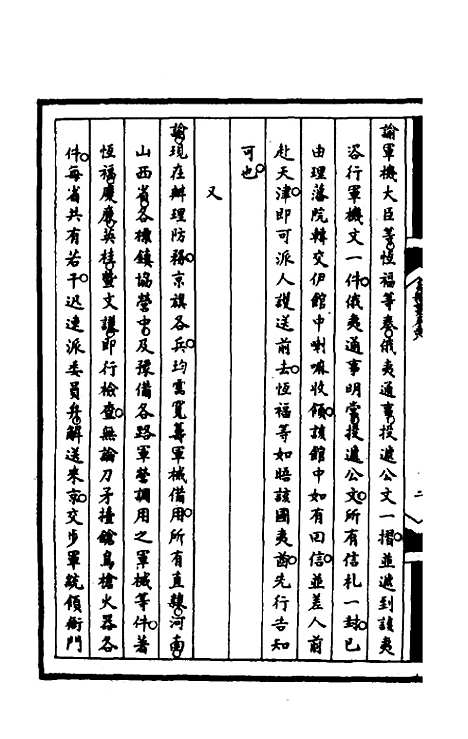 諭軍機大臣等恆福等奏俄夷通事投遞公文一摺並遞到該夷
咨行軍機文一件俄夷通事明常投遞公文所有信札一封已
由理藩院轉交伊館中喇嘛收領該館中如有回信並差人前
赴天津即可派人護送前去恆福等如晤該國夷酋先行告知
可也
又
諭現在辦理防務京旗各兵均需寬籌軍械備用所有直隸河南
山西省各標鎮協營中及豫備各路軍營調用之軍械等件著
恆福慶廉英桂暨文謙即行檢查無論刀矛擡鎗鳥槍火器各
件每省共有若干迅速派委員弁解送來京交步軍統領衙門
二